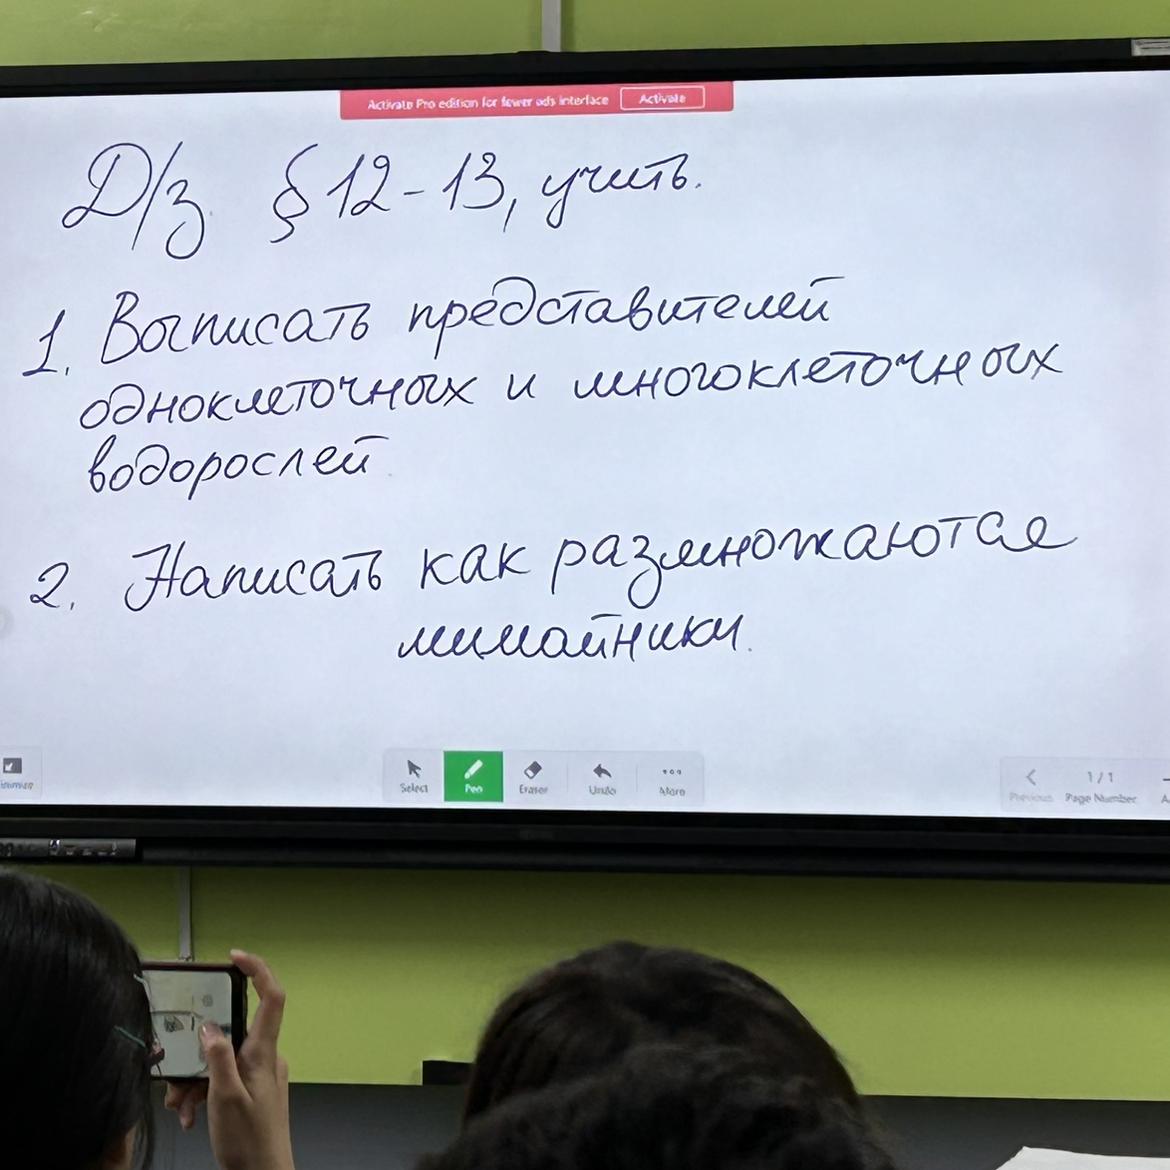 Activate Pro edition for fewer ads interface Activate
Д/з. § 12-13, учить.
1. Выписать представителей
одноклеточных и многоклеточных
водорослей.
2. Написать как размножаются
лишайники.
Select Pen Eraser Undo More
Previous Page Number
1/1